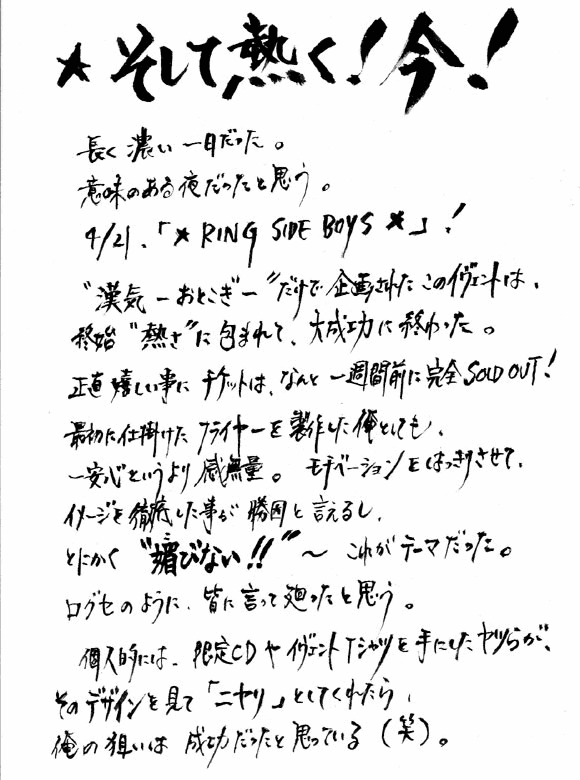 ★そして熱く!今!
長く濃い一日だった。
意味のある夜だったと思う。
4/21、「★RING SIDE BOYS★」!
"漢気-おとこぎ-"だけで企画されたこのイヴェントは、
終始"熱さ"に包まれて、大成功に終わった。
正直嬉しい事にチケットは、なんと一週間前に完全SOLD OUT!
最初に仕掛けたフライヤーを製作した俺としても、
一安心というより感無量。モチベーションをはっきりさせて、
イメージを徹底した事が勝因と言えるし、
とにかく"媚びない!!"～これがテーマだった。
口グセのように、皆に言って廻ったと思う。
個人的には、限定CDやイヴェントTシャツを手にしたヤツらが、
そのデザインを見て「ニヤリ」としてくれたら、
俺の狙いは成功だったと思っている(笑)。